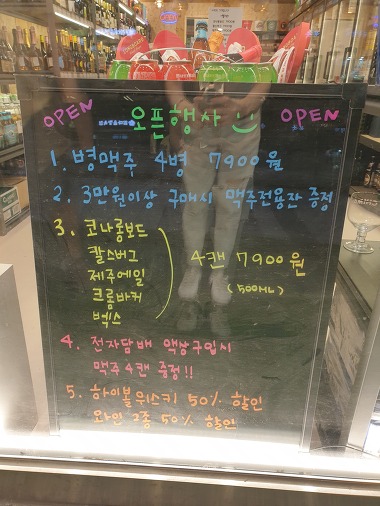 OPEN 오픈행사 OPEN
1. 병맥주 4병 7900원
2. 3만원이상 구매시 맥주전용잔 증정
3. 코나롱보드
칼스버그
제주에일
크롬바커
벡스
4캔 7900원
(500ML)
4. 전자담배 액상구입시
맥주 4캔 증정!!
5. 하이볼위스키 50% 할인
와인 2종 50% 할인